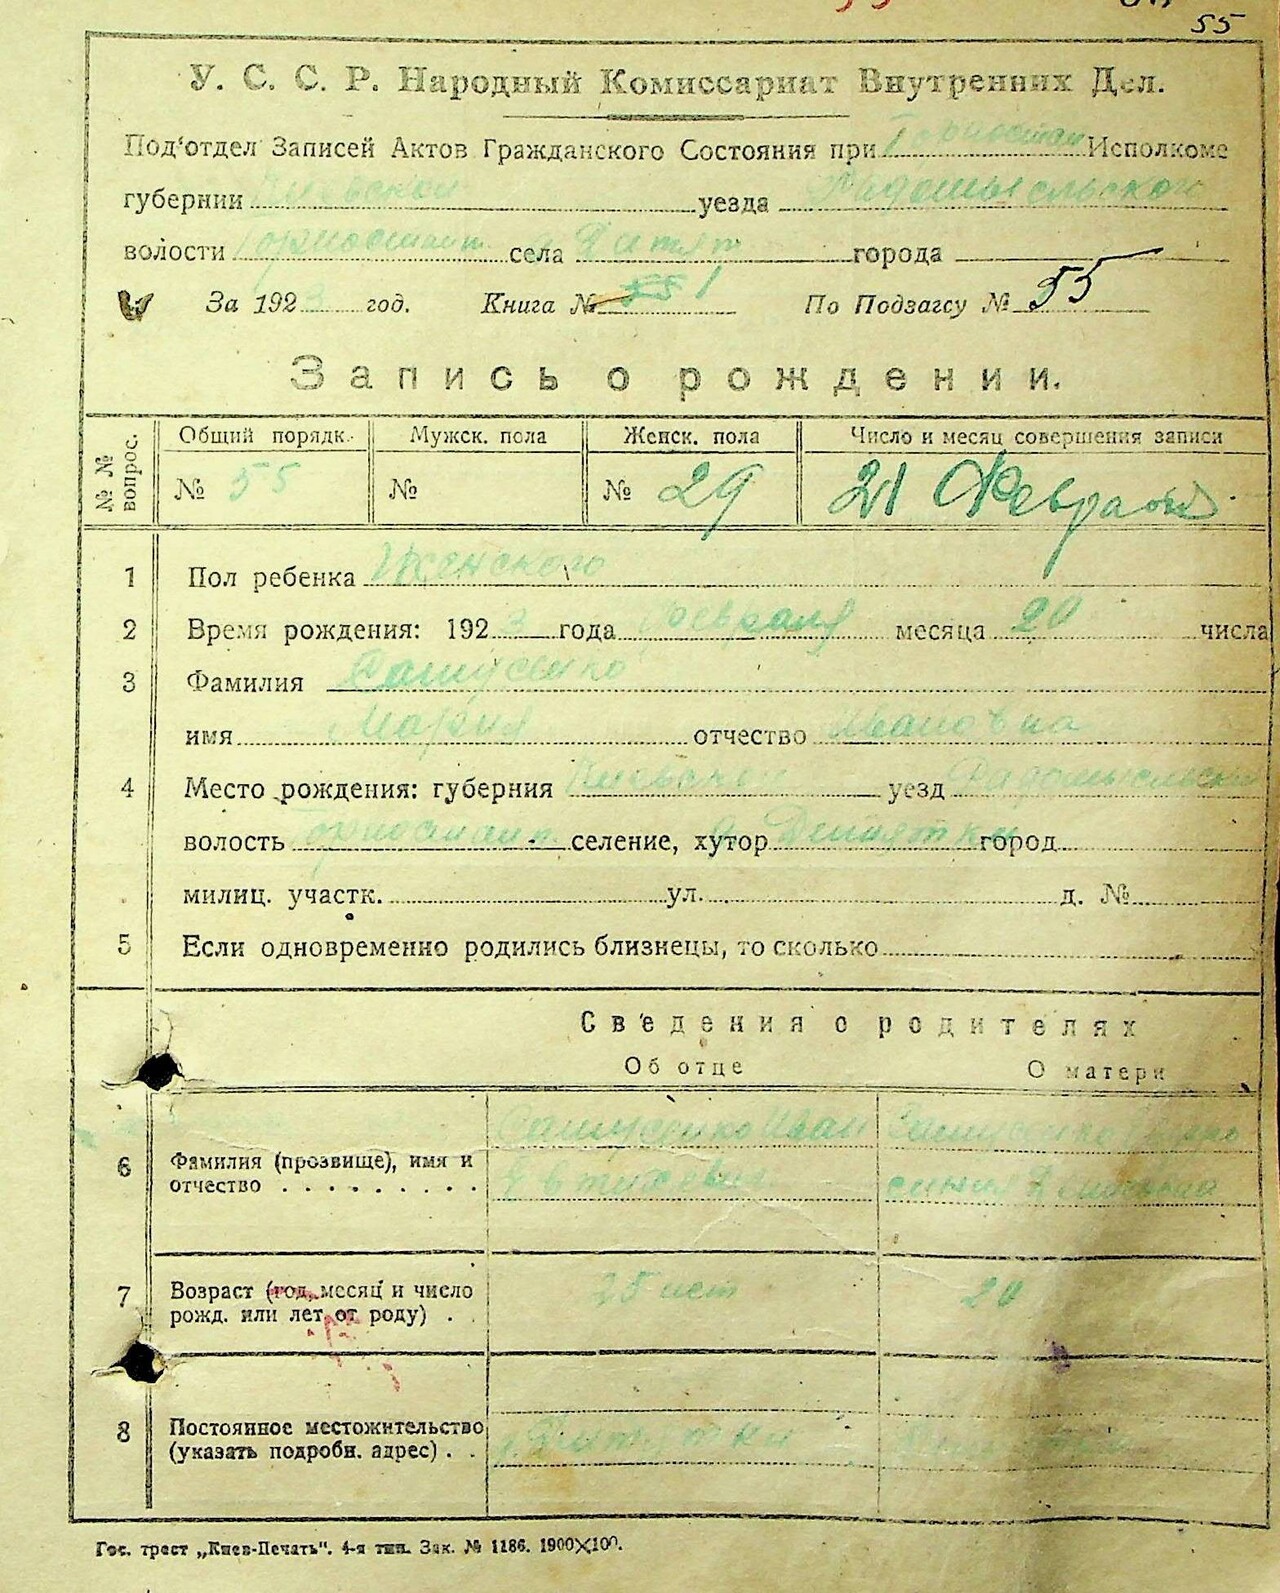 55
У. С. С. Р. Народный Комиссариат Внутренних Дел.
Под‘отдел Записей Актов Гражданского Состояния при Исполкоме
губернии Киевской уезда Радомысльского
волости Горностайп. села Дитят города
За 1923 год. Книга № 1 По Подзагсу № 55
Запись о рождении.
№№ вопрос. Общий порядк. Мужск. пола Женск. пола Число и месяц совершения записи
№ 55 № № 29 21 Февраля
1 Пол ребенка Женского
2 Время рождения: 1923 года Февраля месяца 20 числа
3 Фамилия
имя Мария отчество Ивановна
4 Место рождения: губерния Киевской уезд Радомысльский
волость селение, хутор город
милиц. участк. ул. д. №
5 Если одновременно родились близнецы, то сколько
Сведения о родителях
Об отце О матери
6 Фамилия (прозвище), имя и отчество Иван Евтихевич
7 Возраст (год, месяц и число рожд. или лет от роду) 25 лет 20
8 Постоянное местожительство (указать подробн. адрес)
Гос. трест „Киев-Печать“. 4-я тип. Зак. № 1186. 1900×100.